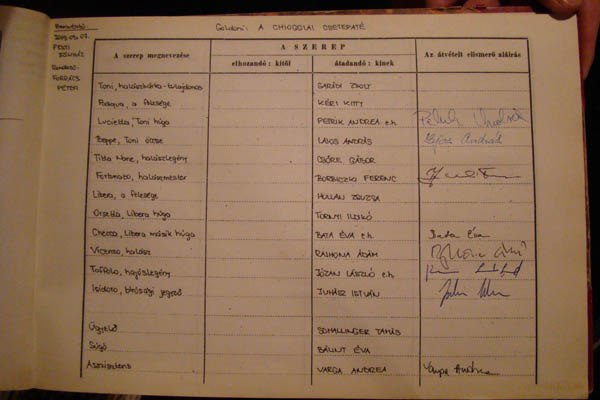 Bemutató:
Goldoni: A CHIOGGIAI CSETEPATÉ
PESTI
SZINHÁZ
RENDEZŐ:
FORGÁCS
PÉTER
A SZEREP
A szerep megnevezése
elhozandó: kitől
átadandó: kinek
Az átvételt elismerő aláírás
Toni, halászbárka-tulajdonos GARÁDI ZSOLT
Pasqua, a felesége KÉRI KITTY
Lucietta, Toni húga PETRIK ANDREA e.h.
Beppe, Toni öccse LAJOS ANDRÁS Lajos András
Titta Nane, halászlegény CSŐRE GÁBOR
Fortunato, halászmester BORBICZKI FERENC
Libera, a felesége HULLAN ZSUZSA
Orsetta, Libera húga TORNYI ILDIKÓ
Checca, Libera másik húga BATA ÉVA e.h. Bata Éva
Vicenzo, halász RAJHONA ÁDÁM
Toffolo, hajóslegény JÓZAN LÁSZLÓ e.h.
Isidoro, bírósági jegyző JUHÁSZ ISTVÁN
Ügyelő SCHALLINGER TAMÁS
Súgó BÁLINT ÉVA
Asszisztens VARGA ANDREA Varga Andrea